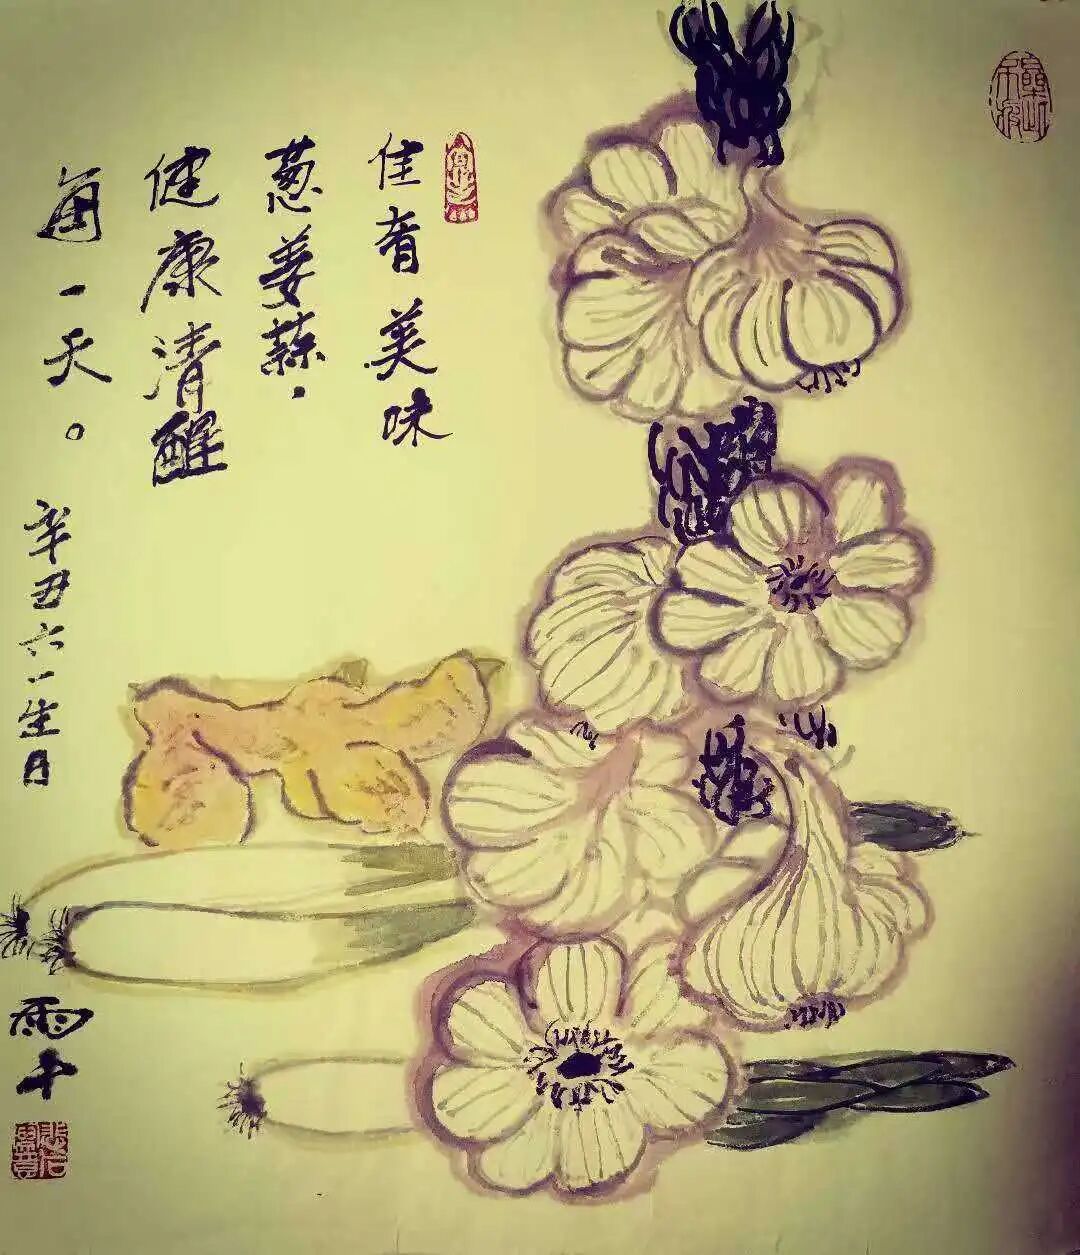 佳肴美味
葱姜蒜，
健康清醒
每一天。
辛丑六一生月
雨千